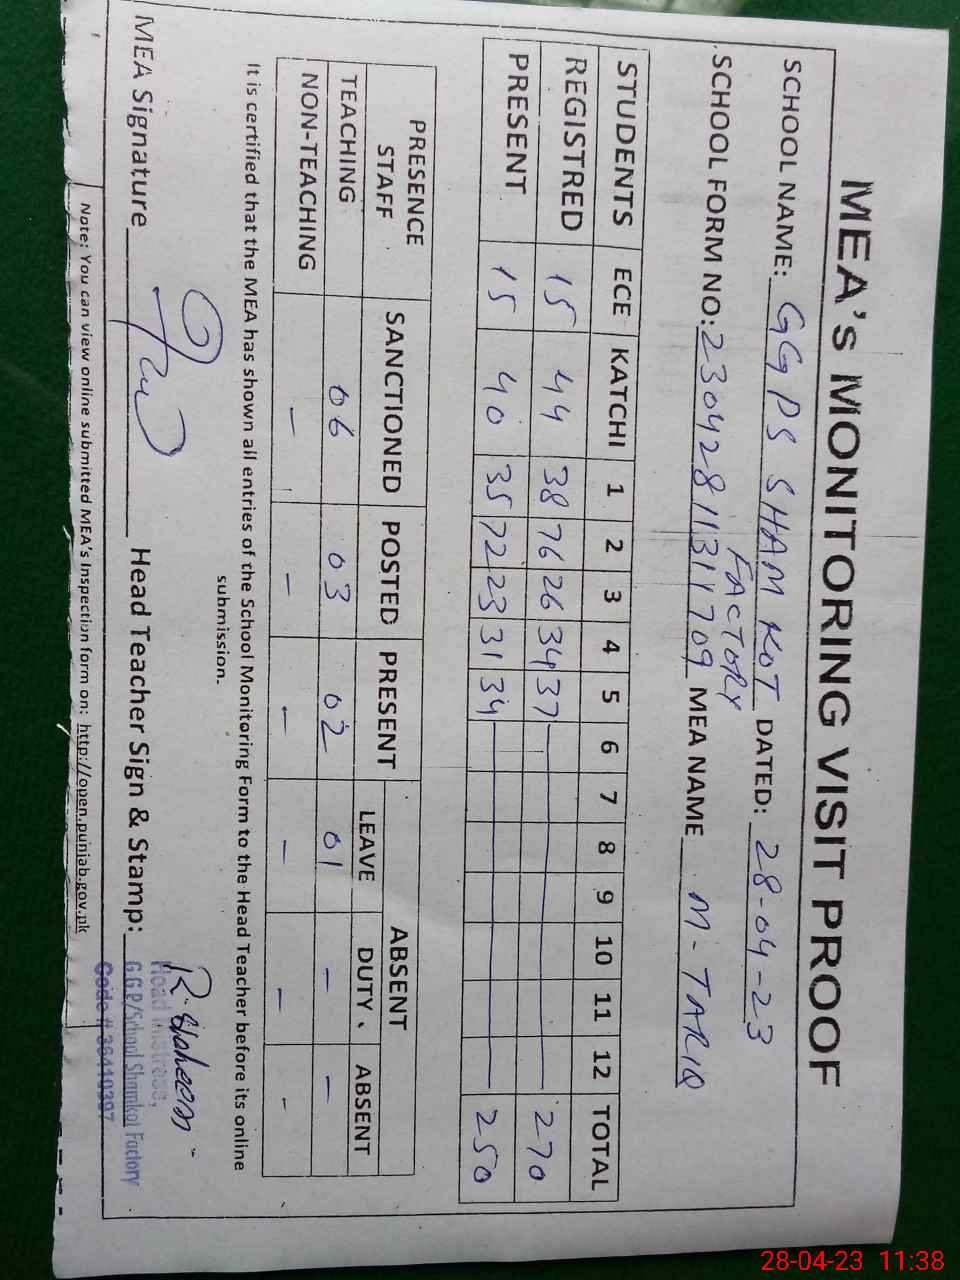 MEA's MONITORING VISIT PROOF
SCHOOL NAME: GGPS SHAM KOT FACTORY DATED: 28-04-23
SCHOOL FORM NO: 23042811311709 MEA NAME M-TARIQ
STUDENTS ECE KATCHI 1 2 3 4 5 6 7 8 9 10 11 12 TOTAL
REGISTRED 15 44 38 76 26 34 37 270
PRESENT 15 40 35 72 23 31 34 250
PRESENCE STAFF SANCTIONED POSTED PRESENT ABSENT
LEAVE DUTY. ABSENT
TEACHING 06 03 02 01 - -
NON-TEACHING - - - - - -
It is certified that the MEA has shown all entries of the School Monitoring Form to the Head Teacher before its online
submission.
MEA Signature Head Teacher Sign & Stamp:
Head Mistress,
G.G.P/School Shamkot Factory
Code #
Note: You can view online submitted MEA's Inspection form on: http://open.punjab.gov.pk
28-04-23 11:38